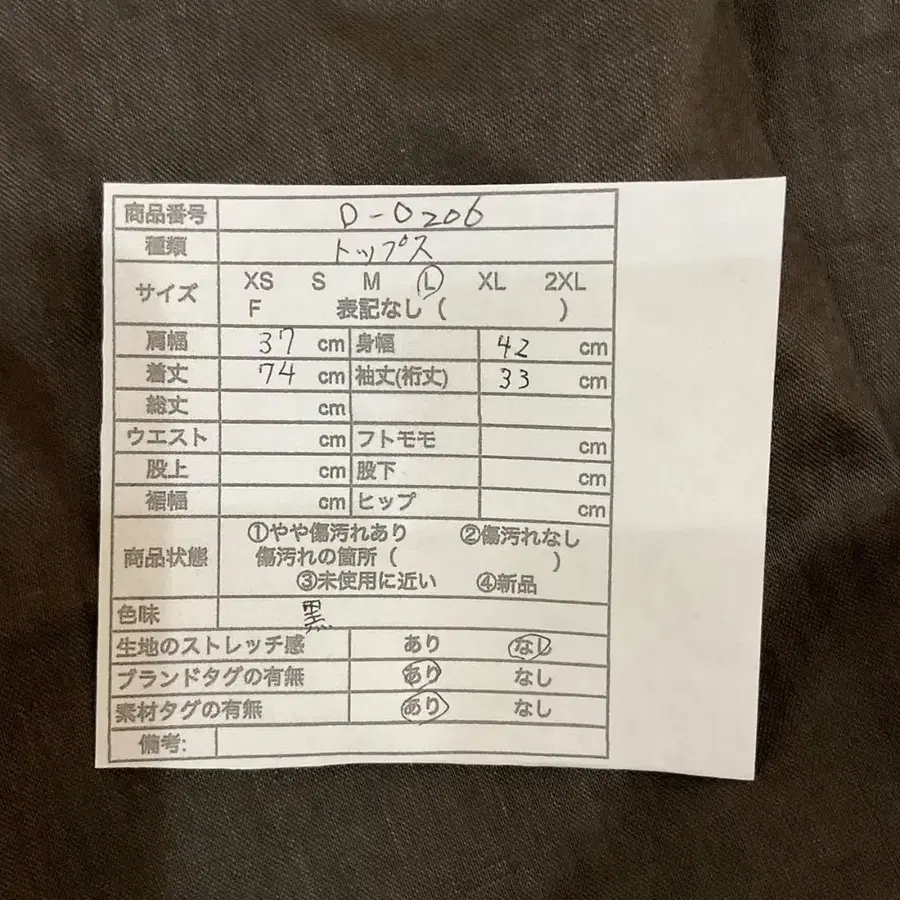 商品番号 D-0206
種類 トップス
サイズ XS S M L XL 2XL
F 表記なし ( )
肩幅 37 cm 身幅 42 cm
着丈 74 cm 袖丈(裄丈) 33 cm
総丈 cm
ウエスト cm フトモモ cm
股上 cm 股下 cm
裾幅 cm ヒップ cm
商品状態 ①やや傷汚れあり ②傷汚れなし
傷汚れの箇所 ( )
③未使用に近い ④新品
色味 黒
生地のストレッチ感 あり なし
ブランドタグの有無 あり なし
素材タグの有無 あり なし
備考: